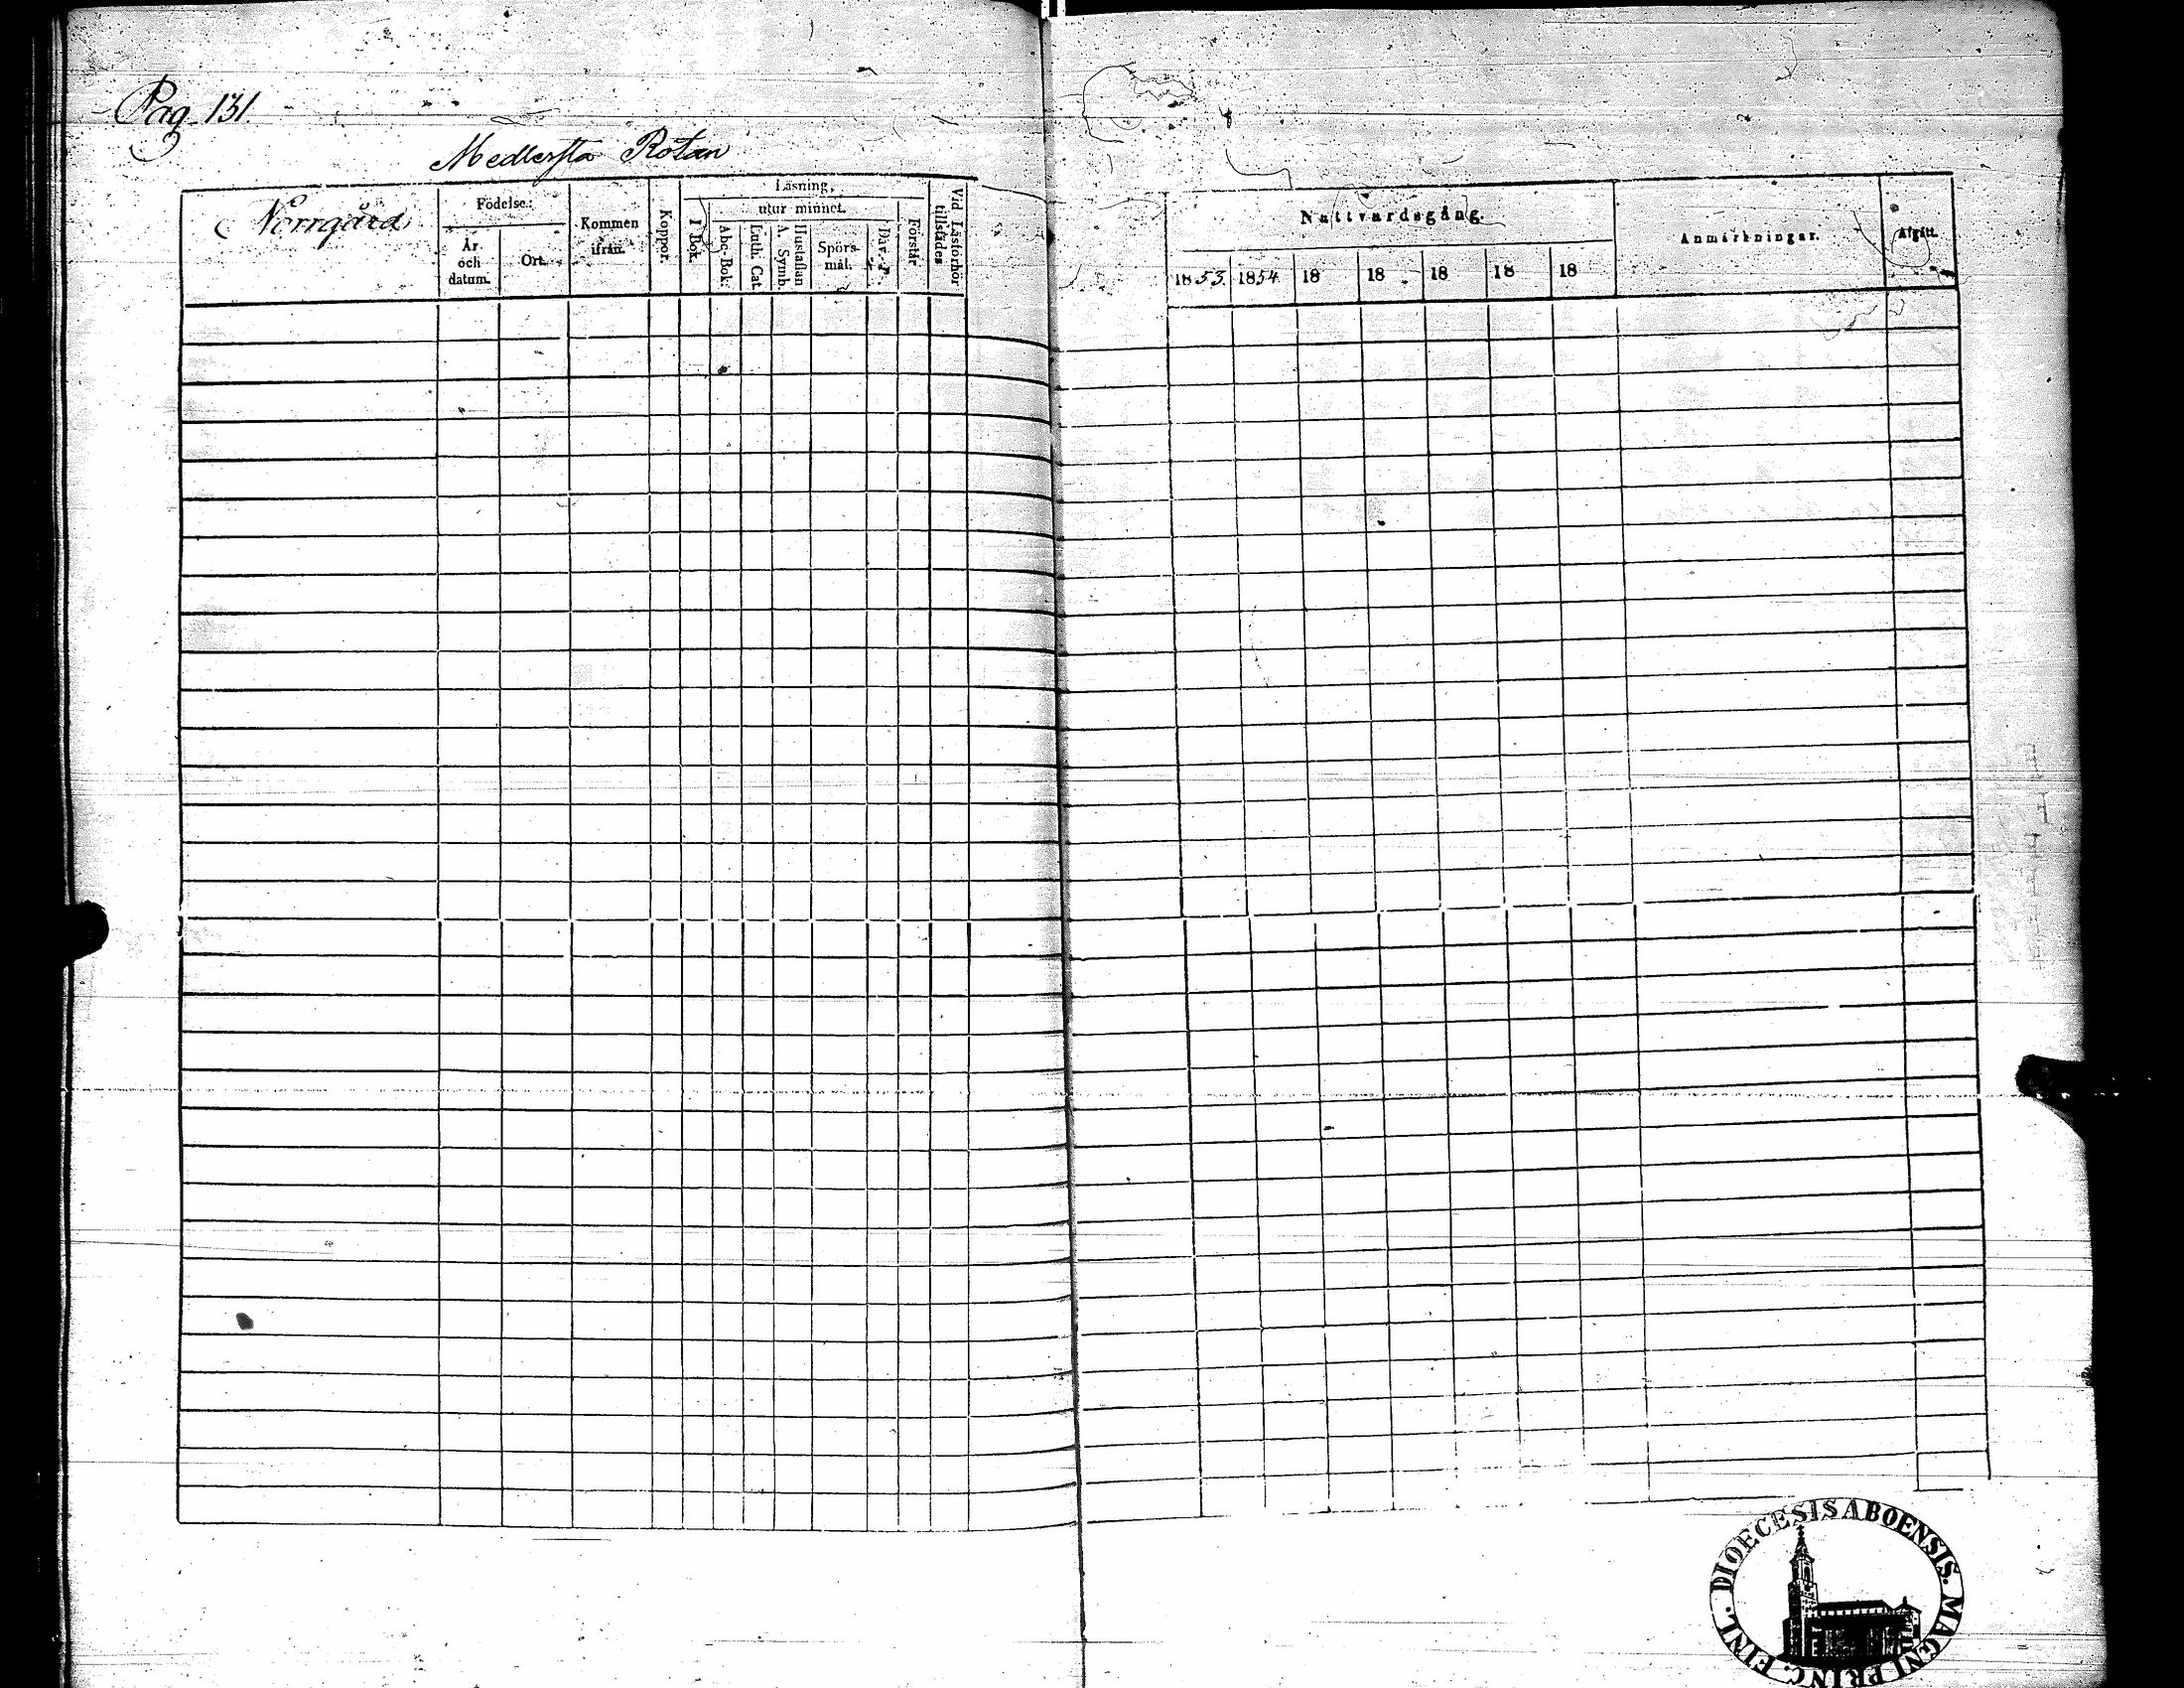 Pag. 131
Medlersta Rotan
Norrgård
Födelse:
År
och
datum.
Ort.
Kommen
ifrån.
Koppor.
Läsning,
I Bok.
utur minnet.
Abc-Bok.
Luth. Cat.
A. Symb.
Hustaflan
Spörs-
mål.
Dav.
Förstår
Vid Läsförhör
tillstädes
Nattvardsgång.
1853. 1854. 18 18 18 18 18
Anmärkningar.
Afgått.
DIOECESIS ABOENSIS. MAGNI PRINC. FINL.